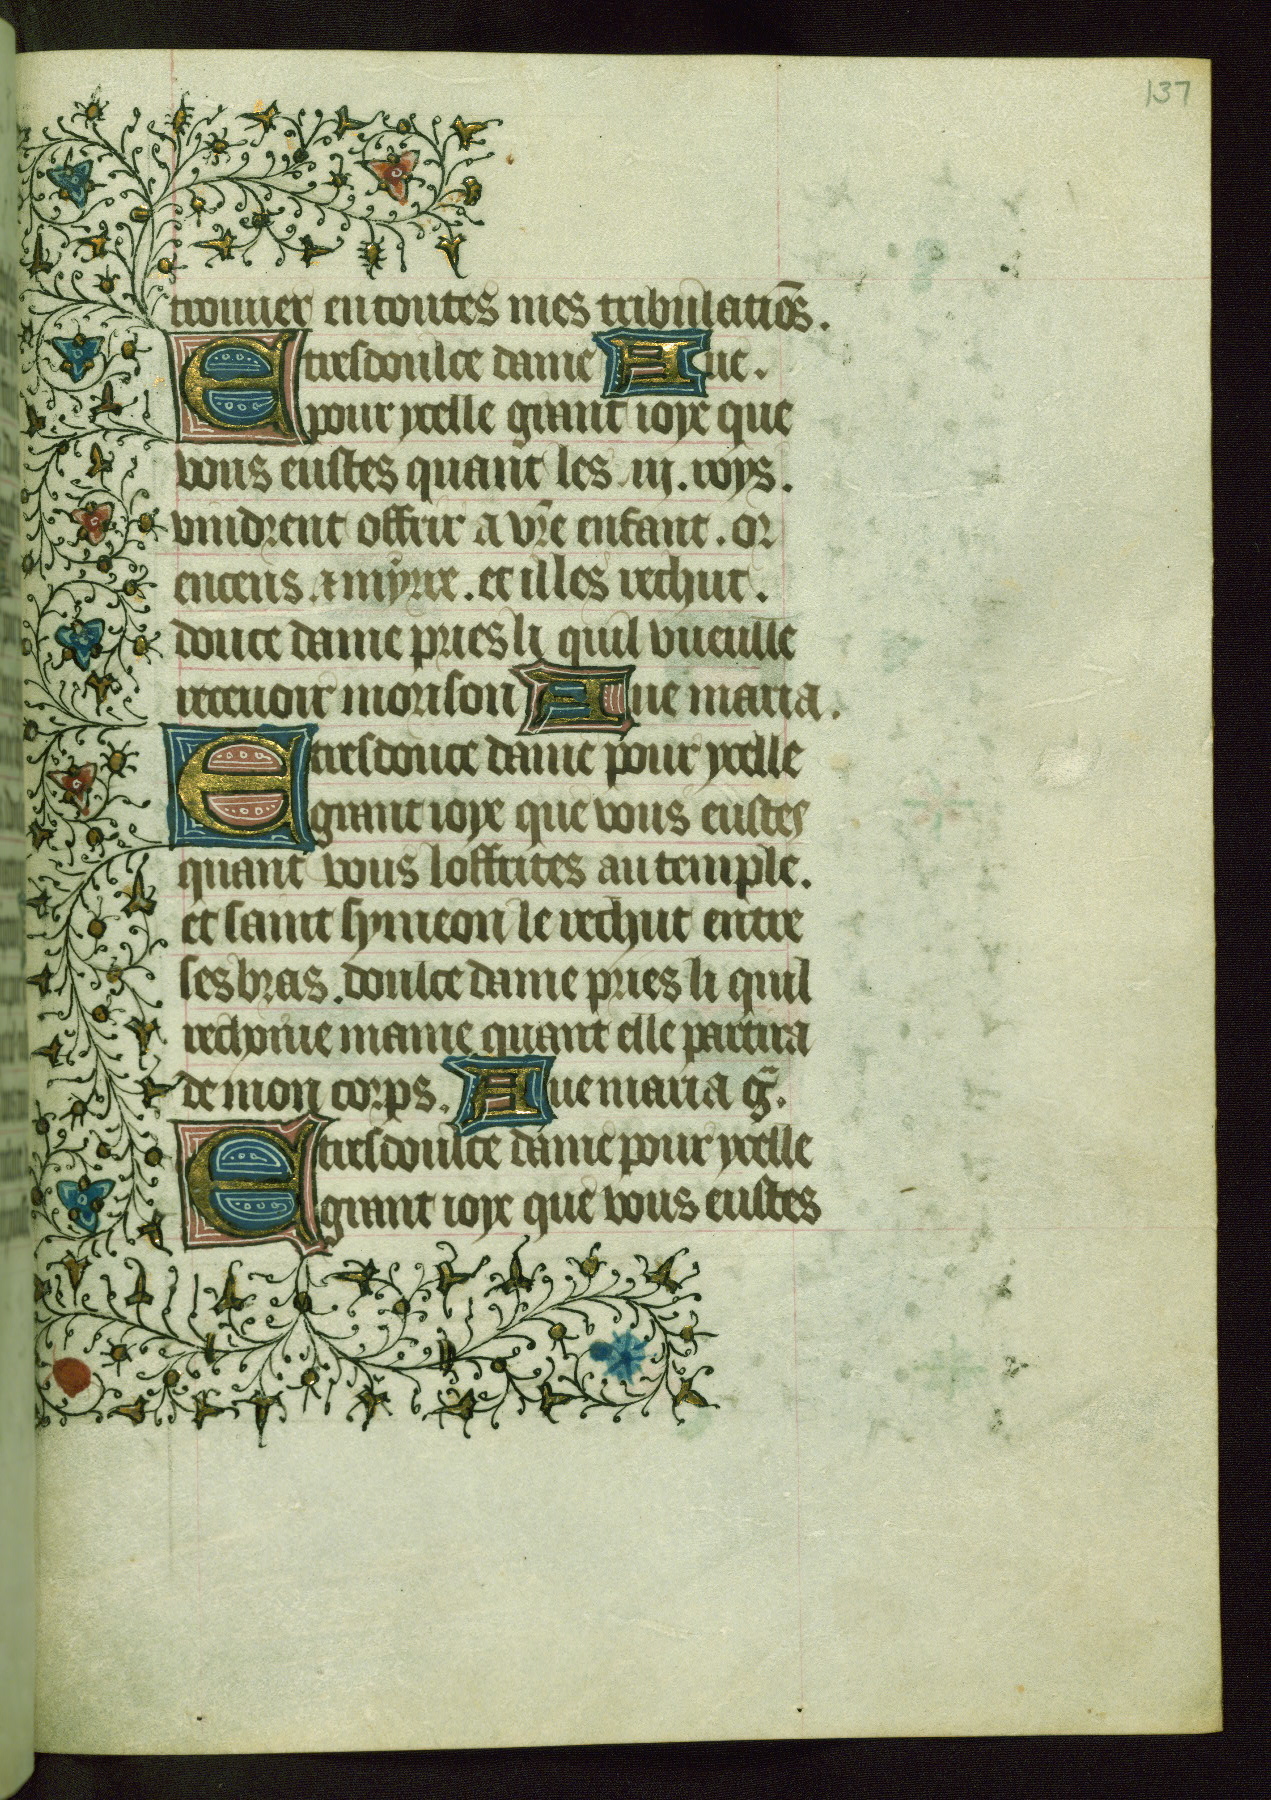 137
trouuer en toutes mes tribulatiōs.
E tresdoulce dame Aue.
pour ycelle grant ioye que
vous eustes quant les .iij. roys.
vindrent offrir a vr̄e enfant. or
encens. & myrre. et il les rechut.
douce dame pries li quil vueulle
receuoir morison Aue maria.
E tresdouce dame pour ycelle
grant ioye que vous eustes
quant vous loffrites au temple.
et saint symeon le rechut entre
ses bras. doulce dame pries li quil
rechoiue mame quant elle partira
de mon corps. Aue maria gͣ.
E tresdoulce dame pour ycelle
grant ioye que vous eustes